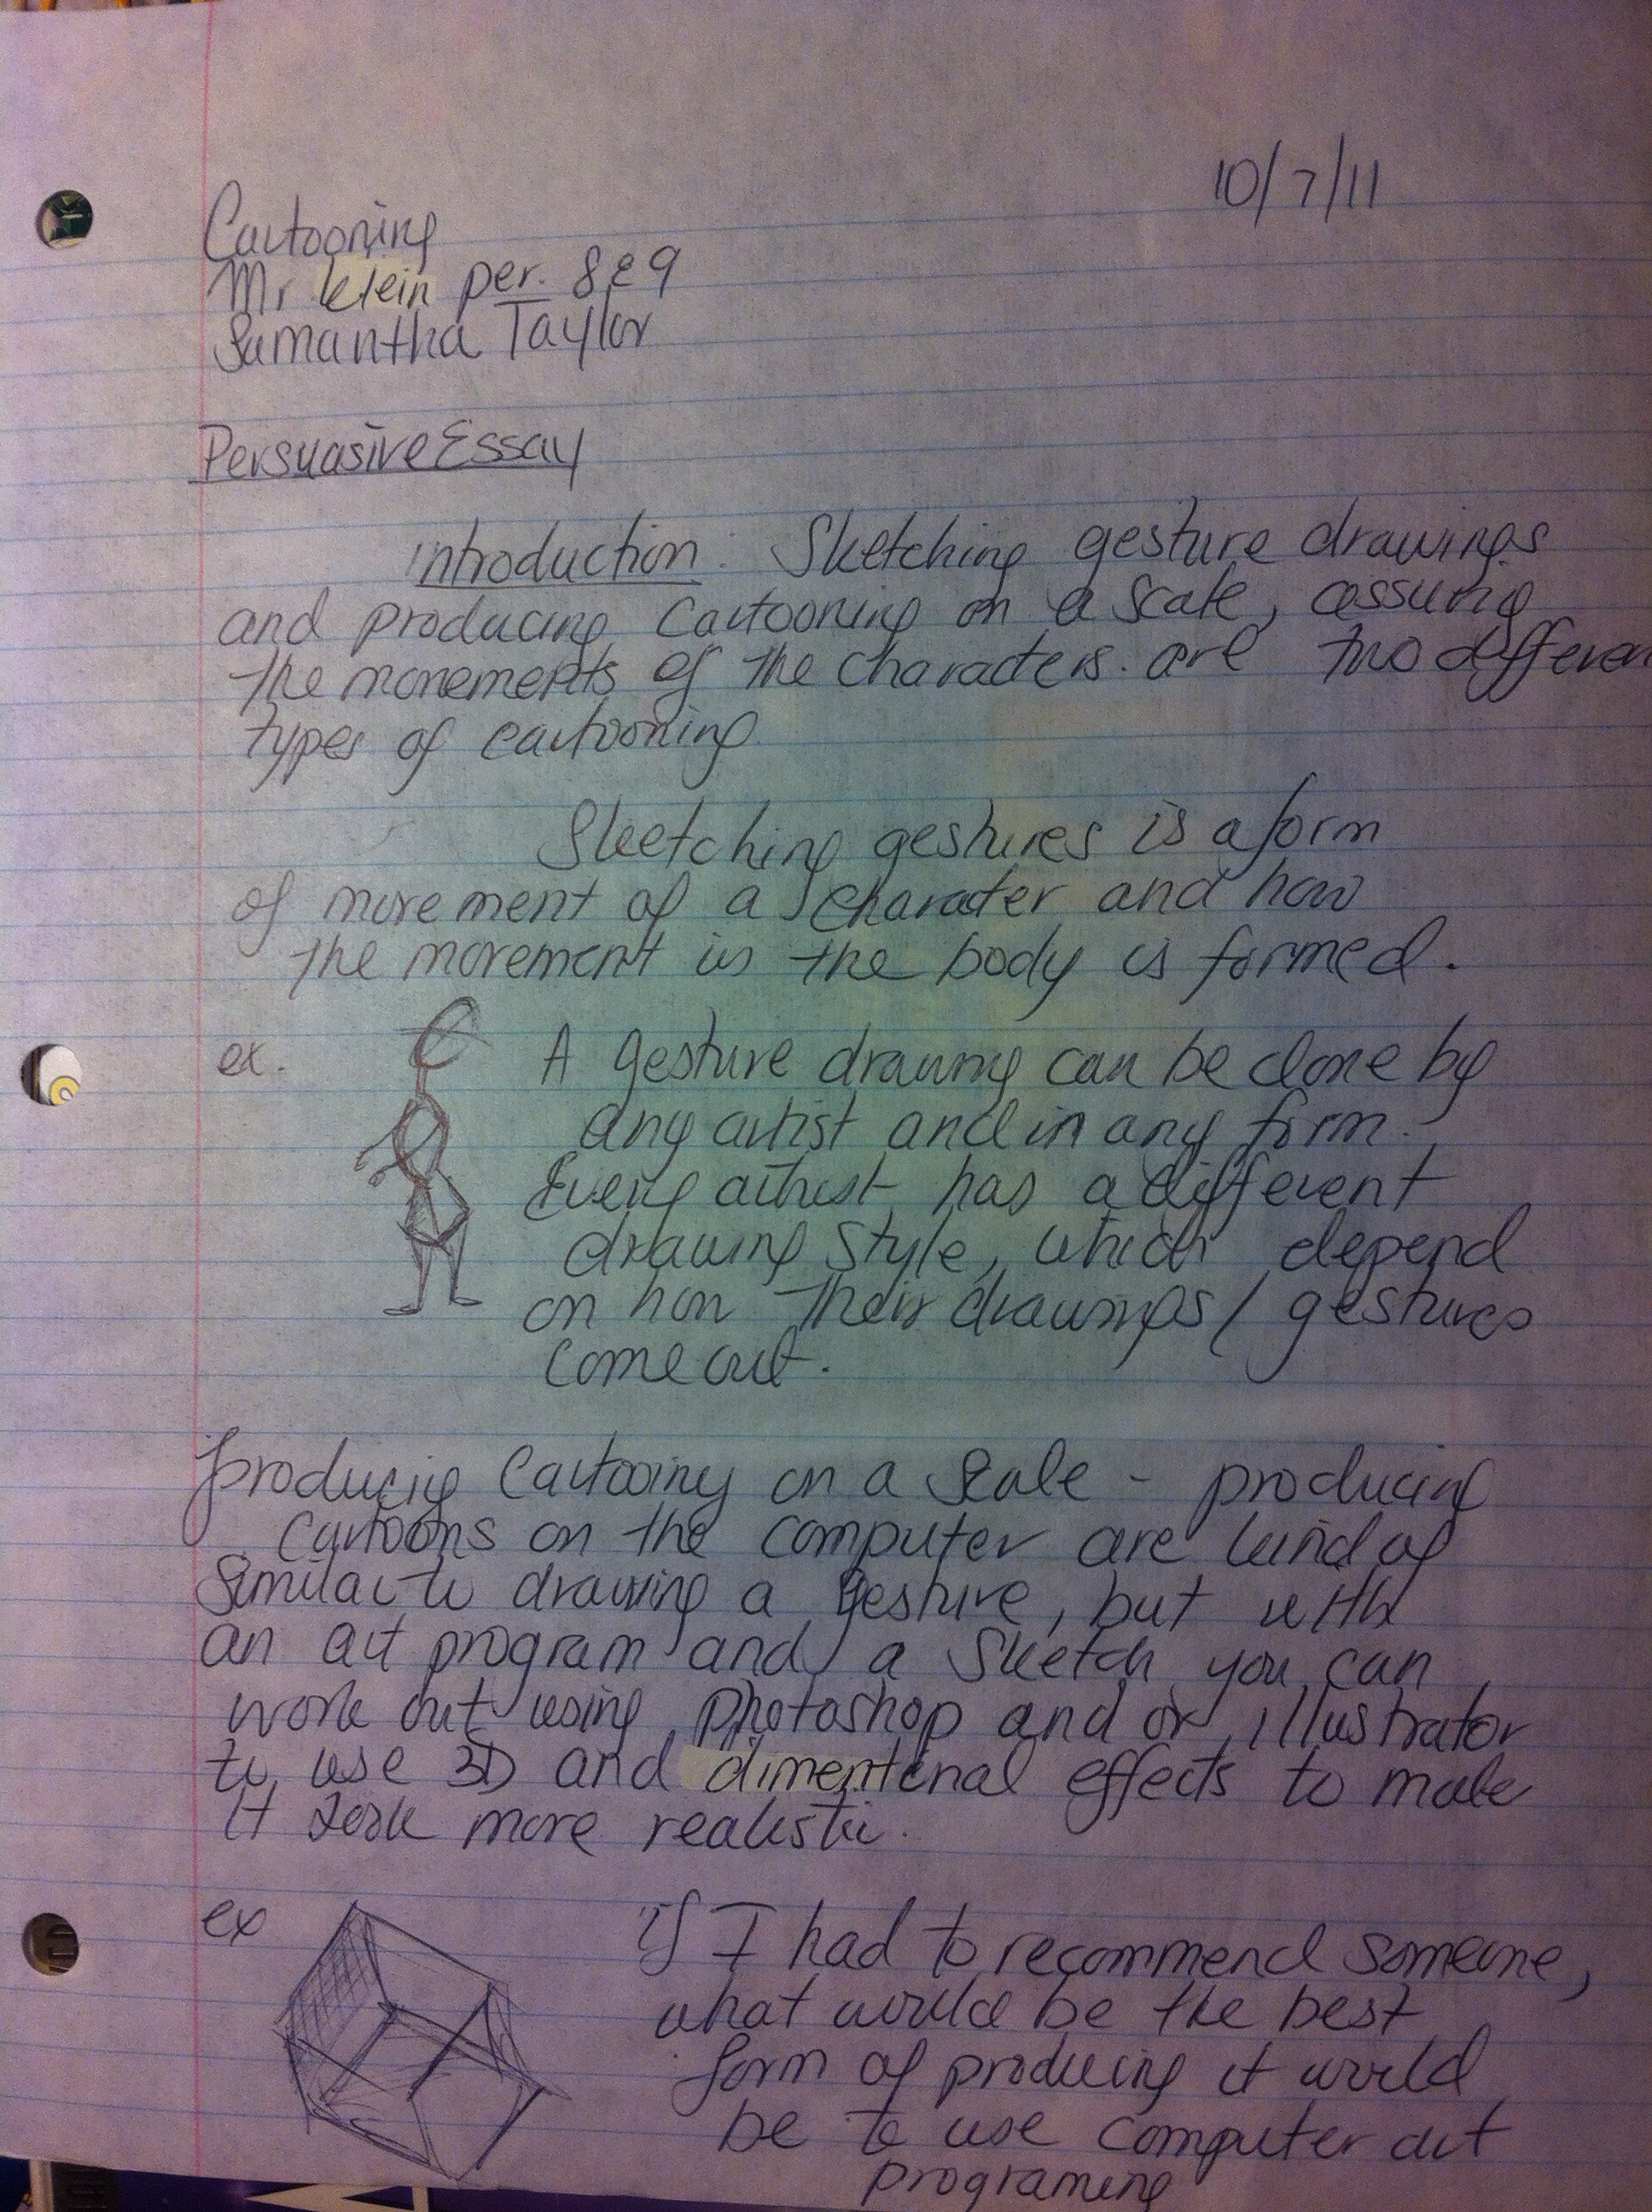 10/7/11
Cartooning
Mr Klein per. 8 & 9
Samantha Taylor
Persuasive Essay
introduction: Sketching gesture drawings
and producing Cartooning on a Scale, assuring
the movements of the characters. are two differen
types of cartooning.
Sketching gestures is a form
of movement of a character and how
the movement in the body is formed.
ex. A gesture drawing can be done by
any artist and in any form.
Every artist has a different
drawing style, which depend
on how their drawings/gestures
come out.
producing Cartooning on a Scale - producing
Cartoons on the computer are kind of
Similar to drawing a gesture, but with
an art program and a Sketch you can
work out using photoshop and or illustrator
to use 3D and dimentional effects to make
it look more realistic.
ex if I had to recommend someone,
what would be the best
form of producing it would
be to use computer art
programing